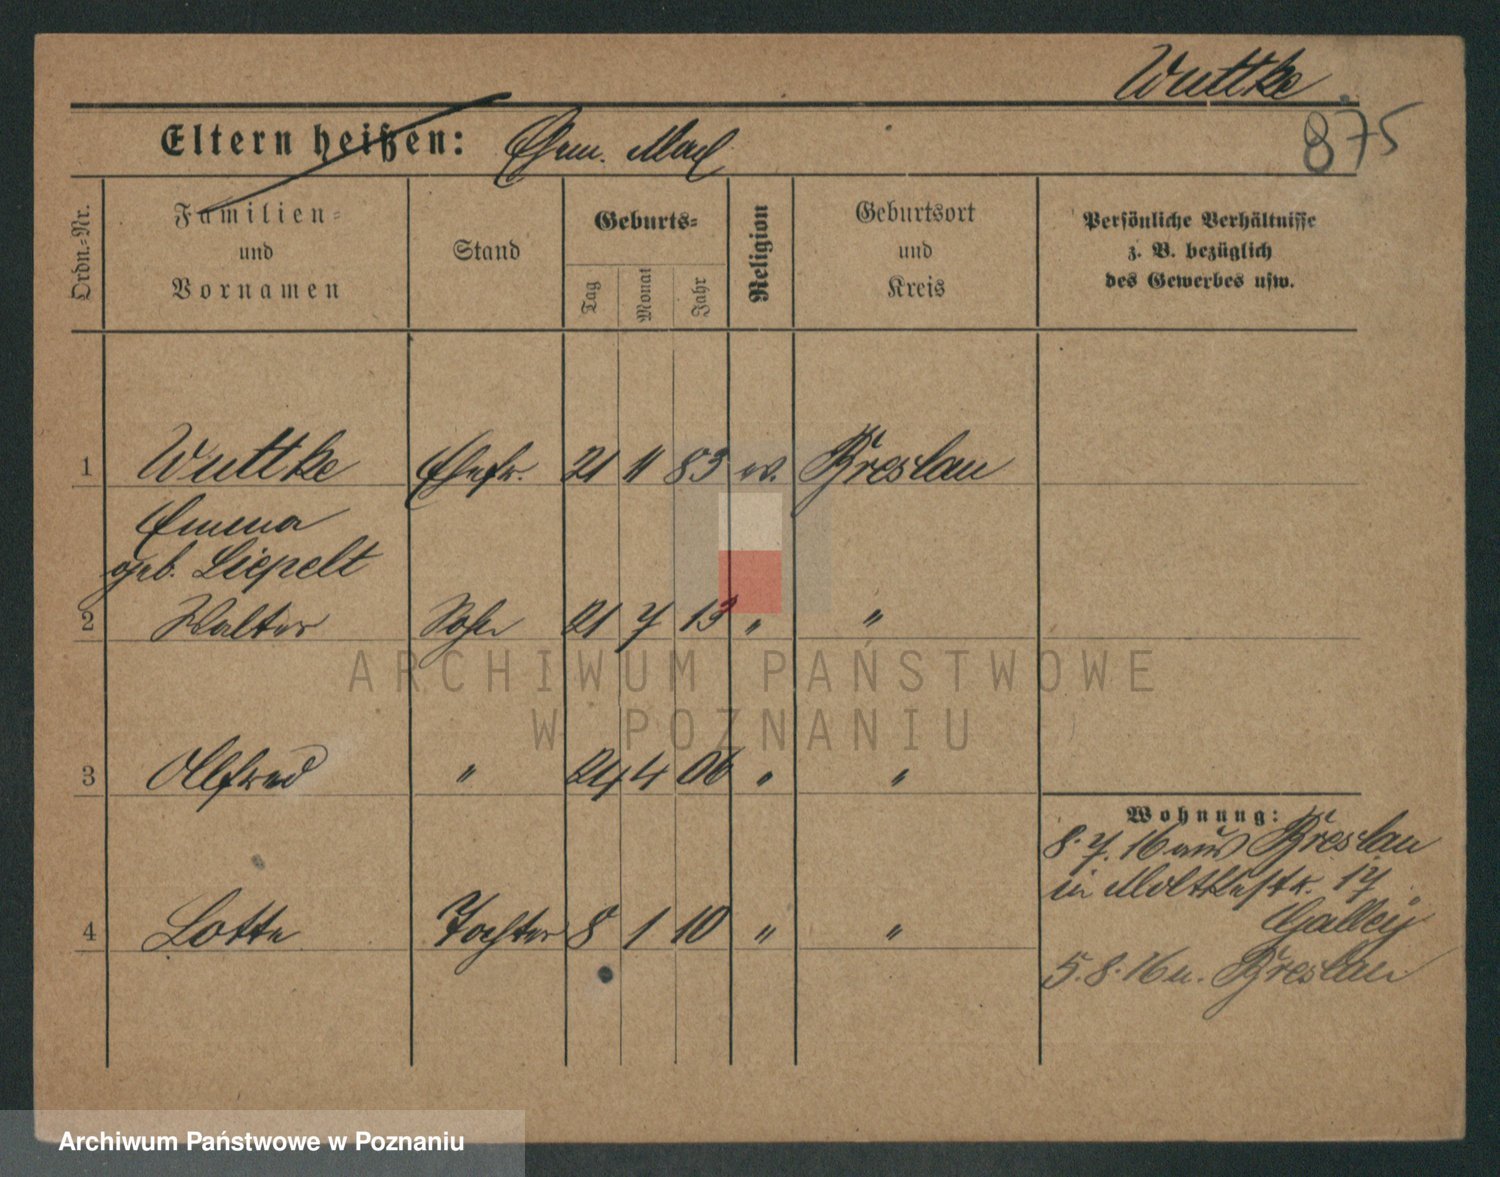 Wuttke
875
Eltern heißen: Ehem. Max
Ordn.-Nr.
Familien-
und
Vornamen
Stand
Geburts-
Tag
Monat
Jahr
Religion
Geburtsort
und
Kreis
Persönliche Verhältnisse
z. B. bezüglich
des Gewerbes usw.
1 Wuttke Ehefr. 21 11 83 ev. Breslau
Emma
geb. Liepelt
2 Walter Sohn 21 7 13 " "
3 Alfred " 24 4 06 " "
4 Lotte Tochter 8 1 10 " "
Wohnung:
8.7.16 aus Breslau
in Moltkestr. 17
5.8.16 n. Breslau
ARCHIWUM PAŃSTWOWE
W POZNANIU
Archiwum Państwowe w Poznaniu